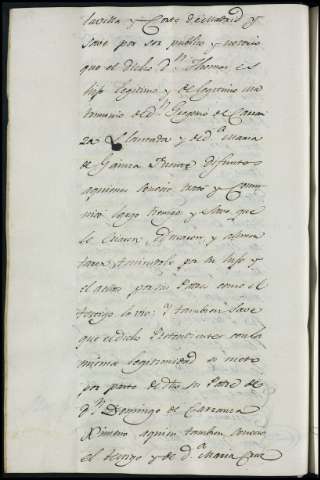 la villa y Corte de Madrid y
save por ser publico y notorio
que el dicho Dn. Thomas es
hijo legitimo y de legitimo ma
trimonio de Dn. Gregorio de Carran
za Llarauda y de Da. Maria
de Gainza difuntos
a quienes conocio trato y Comu
nico largo tiempo y save que
le Criaron, educaron, y alimen
taron teniendole por tal hijo y
el a ellos por sus Padres como el
testigo lo vio: y tambien save
que el dicho Pretendiente con la
misma legitimidad es nieto
por parte de dho su Padre de
Dn. Domingo de Carranza
Ximeno a quien tambien conocio
el testigo y de Da. Maria Cruz